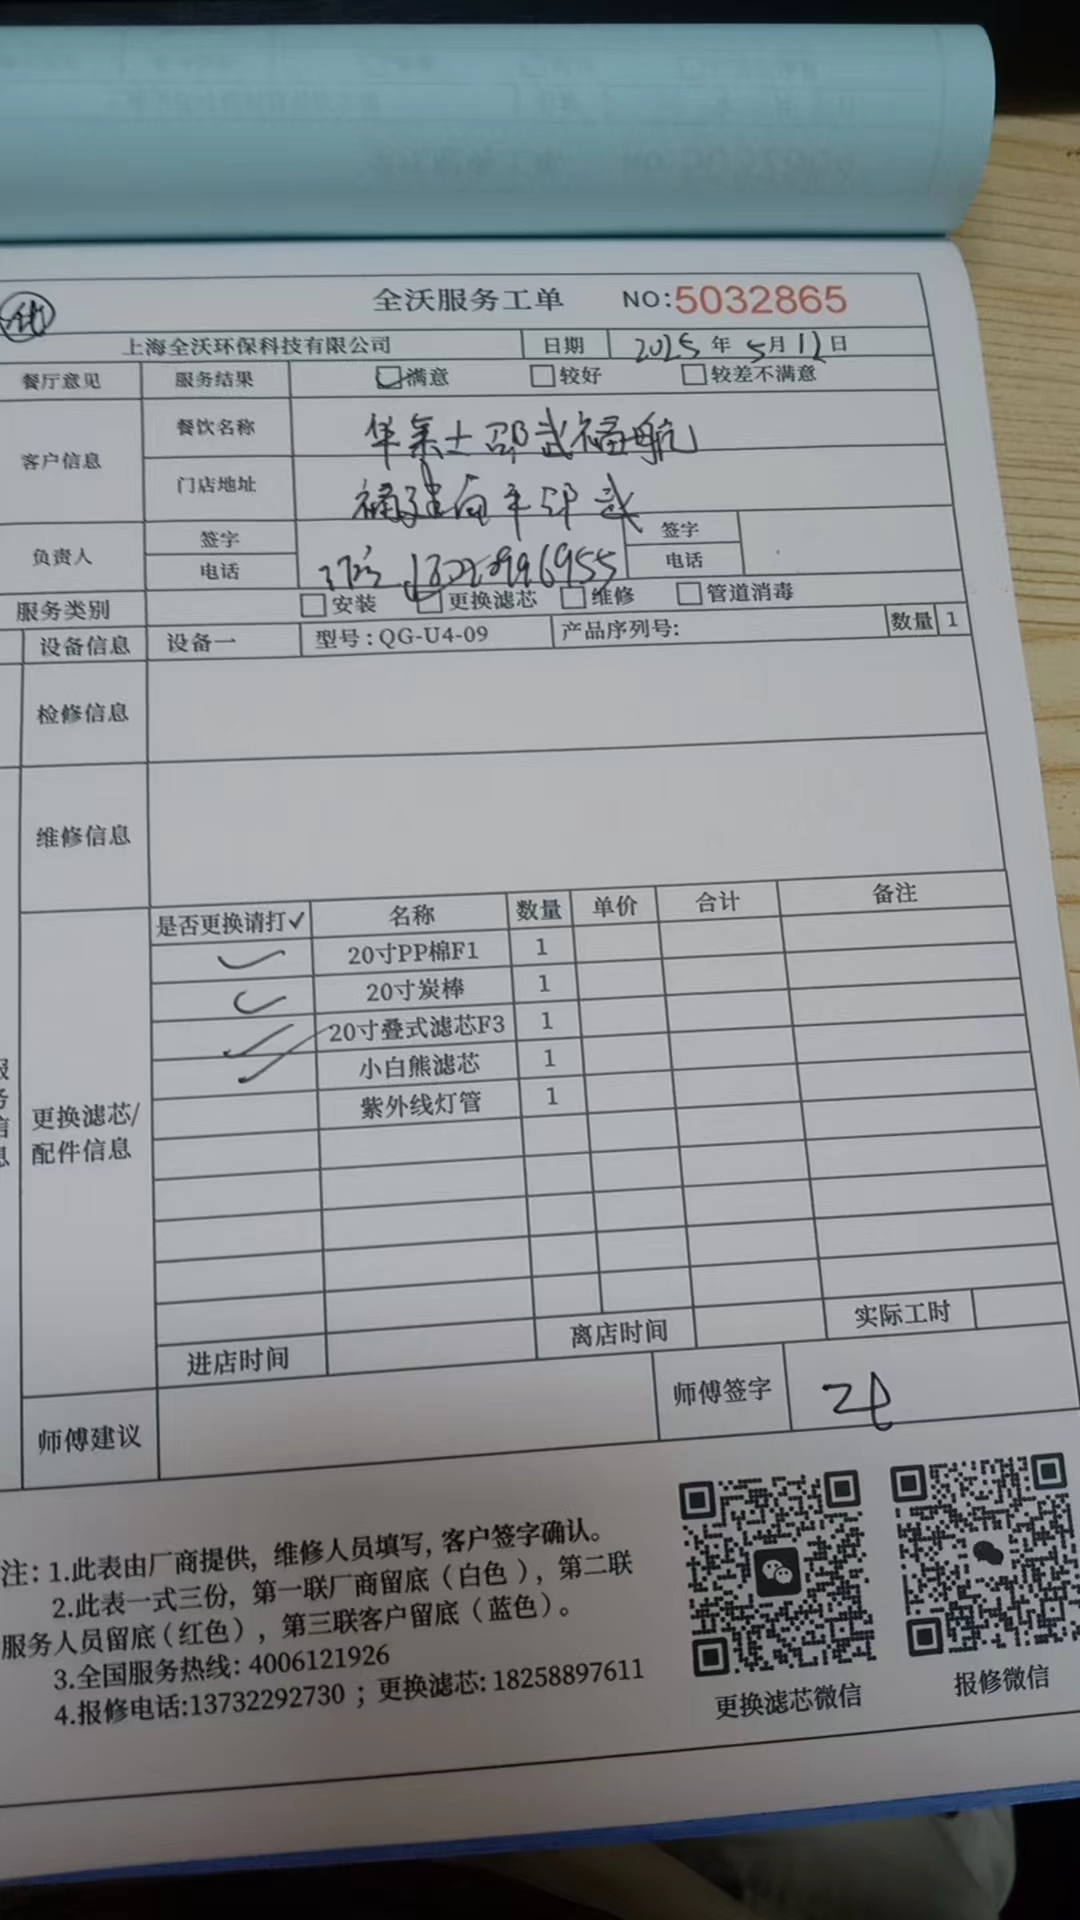 全沃服务工单 NO:5032865
上海全沃环保科技有限公司 日期 2025年5月12日
餐厅意见 服务结果 满意 较好 较差不满意
客户信息 餐饮名称 华莱士邵武福航
门店地址 福建南平邵武
负责人 签字 签字
电话 电话
服务类别 安装 更换滤芯 维修 管道消毒
设备信息 设备一 型号: QG-U4-09 产品序列号: 数量 1
检修信息
维修信息
是否更换请打✓ 名称 数量 单价 合计 备注
✓ 20寸PP棉F1 1
✓ 20寸炭棒 1
✓ 20寸叠式滤芯F3 1
✓ 小白熊滤芯 1
紫外线灯管 1
更换滤芯/
配件信息
进店时间 离店时间 实际工时
师傅建议 师傅签字
注: 1.此表由厂商提供, 维修人员填写, 客户签字确认。
2.此表一式三份, 第一联厂商留底(白色), 第二联
服务人员留底(红色), 第三联客户留底(蓝色)。
3.全国服务热线: 4006121926
4.报修电话:13732292730 ; 更换滤芯: 18258897611
更换滤芯微信 报修微信